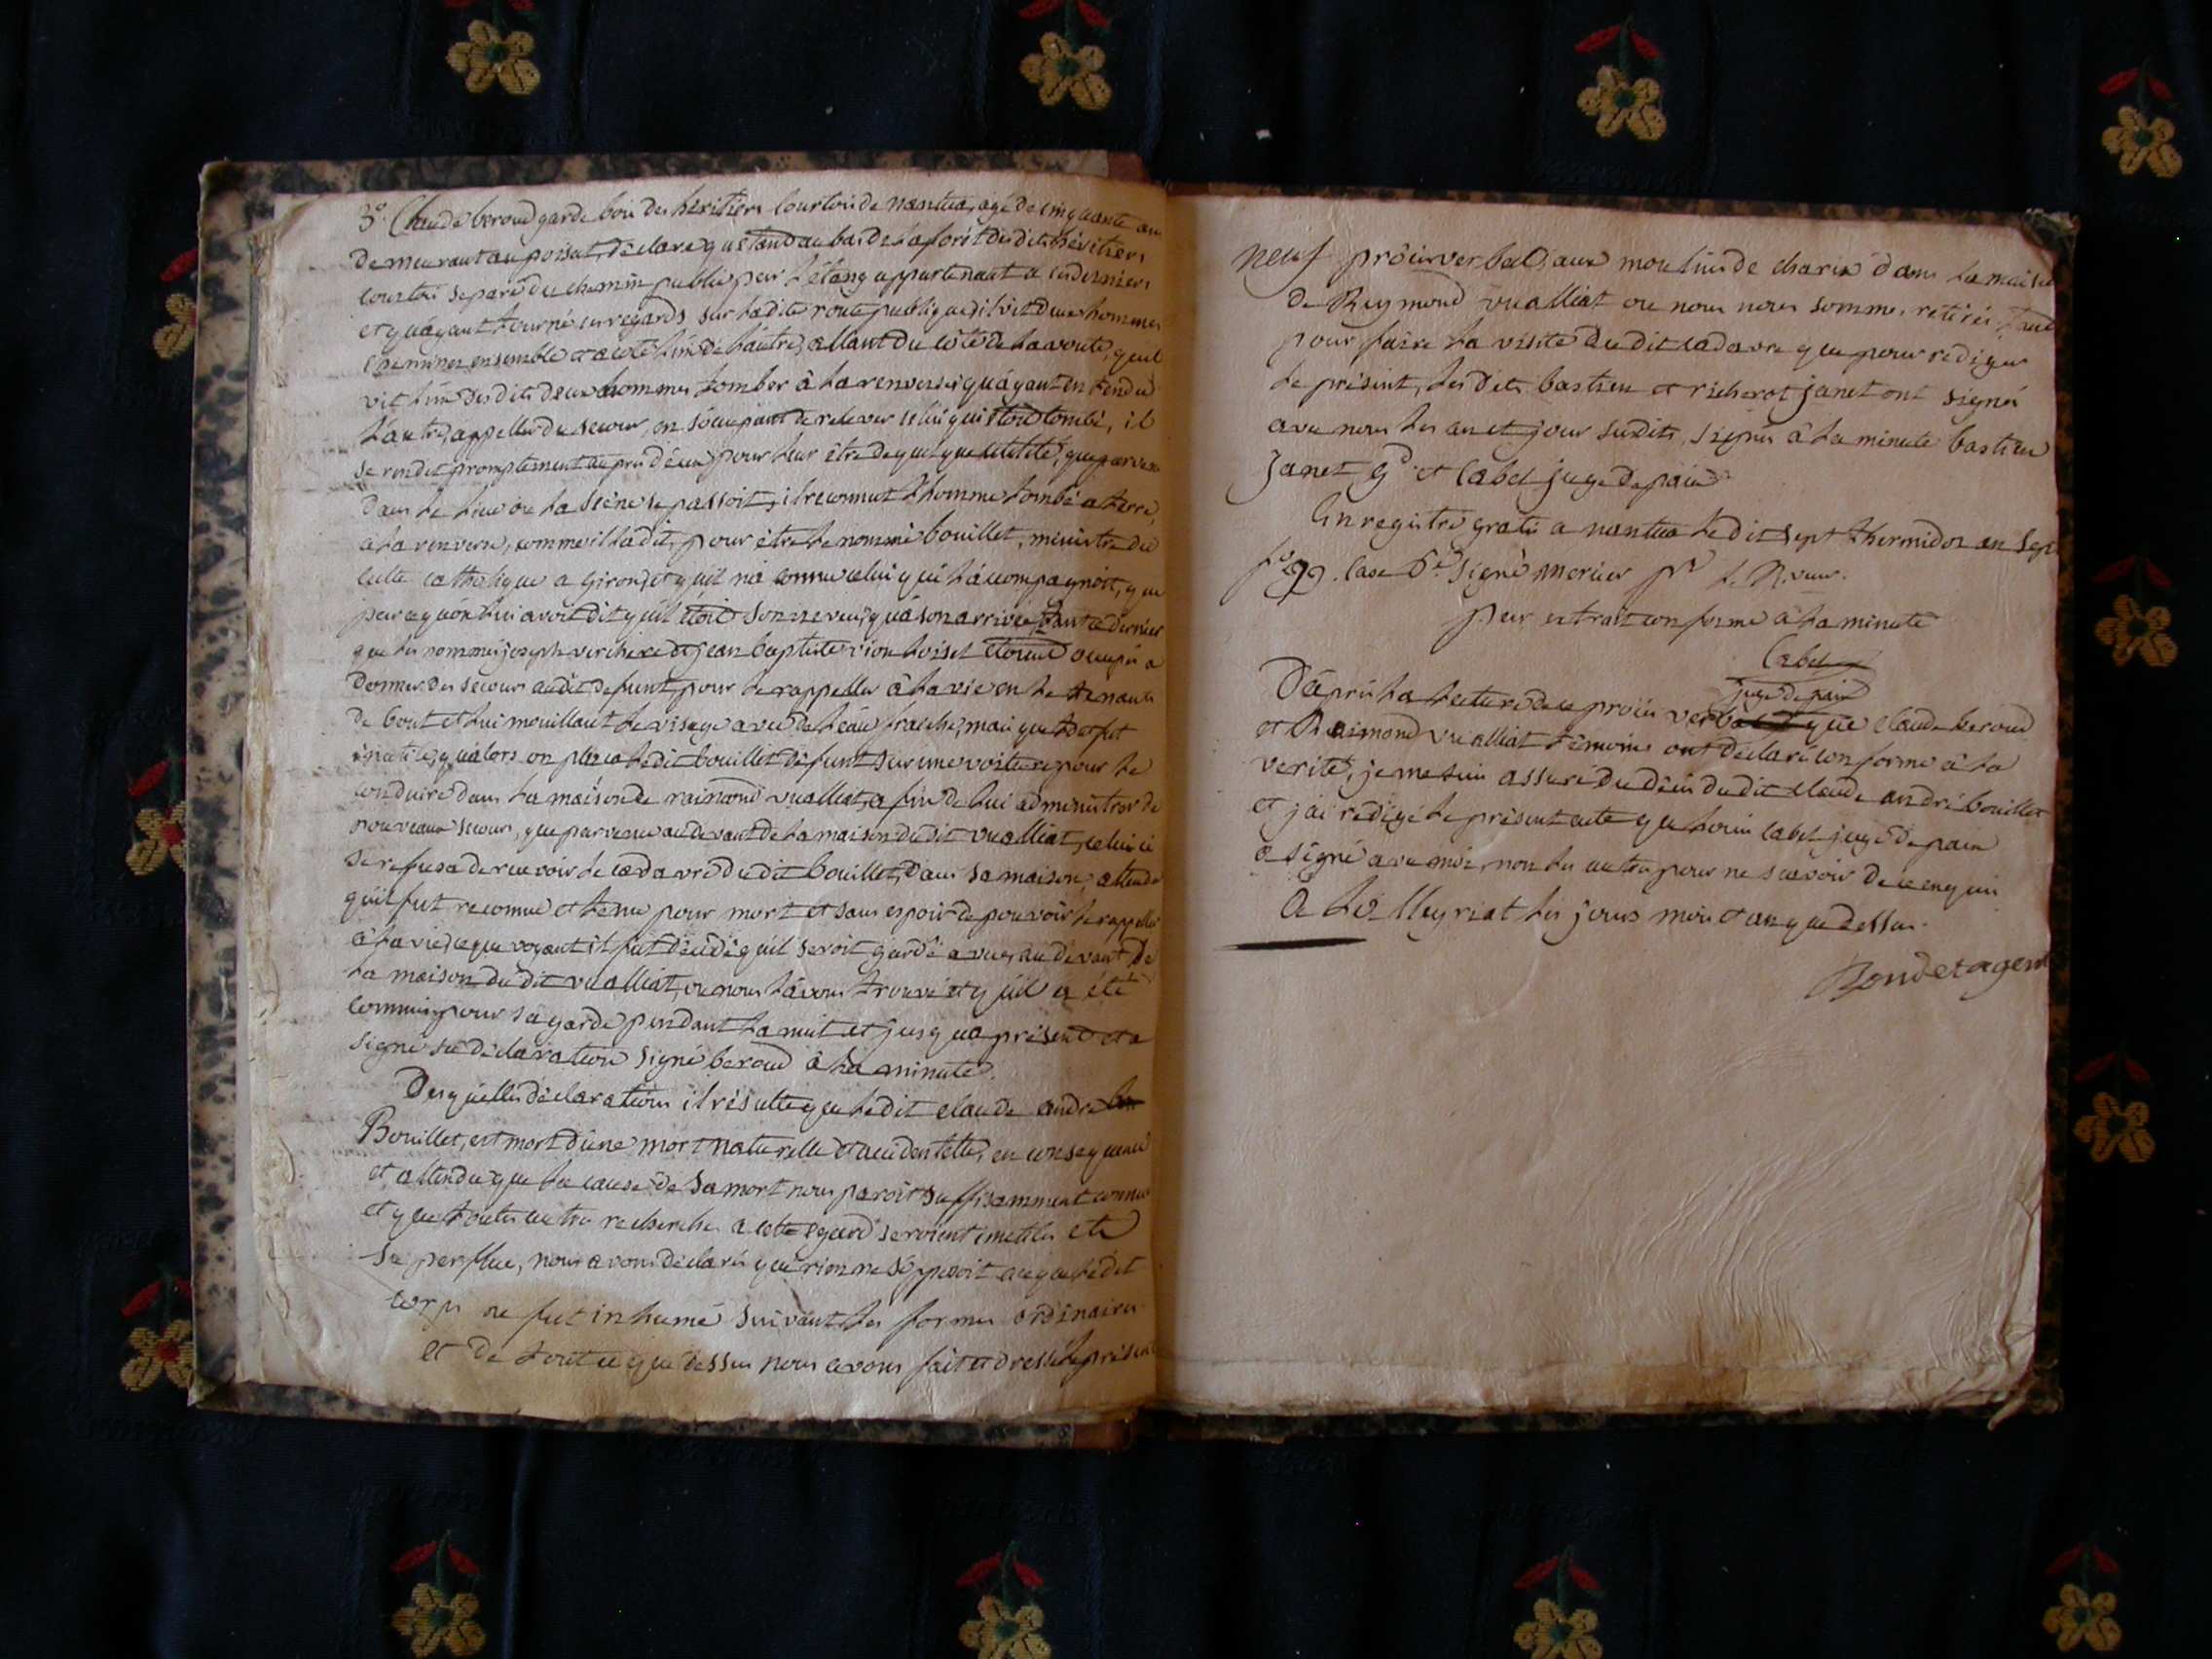 3°. Claude beroud garde bois des heritiers Courtois de nantua, agé de cinquante ans
demeurant au poisat, déclare qu'etand au bas de la forêt desdits héritiers
courtois separé du chemin public par l'étang appartenant a ces derniers
et qu'ayant tourné ses regards sur ladite route publique il vit deux hommes
cheminer ensemble et a coté l'un de l'autre, allant du coté de la voute, qu'il
vit l'un desdits deux hommes tomber à la renverse, qu'ayant entendu
l'autre appeller du secour, en s'ocupant de relever celui qui etoit tombé, il
se rendit promptement auprès d'eux pour leur être de quelque utilité, que parvenu
dans le lieu ou la scène se passoit, il reconnut l'homme tombé a terre,
a la renverse, comme il l'a dit, pour etre le nommé bouillet, ministre du
culte catholique a giron, et qu'il n'a connu celui qui l'accompagnoit, que
parcequ'on lui avoit dit qu'il étoit son neveu, qu'a son arrivée, tant ce dernier
que les nommés joseph verchere et jean baptiste vion loisel etoient ocupés a
donner des secours audit defunt, pour le rappeller à la vie en le tenant
de bout et lui mouillant le visage avec de l'eau fraiche, mais que tout fut
inutile, qu'alors on plaça ledit bouillet défunt sur une voiture pour le
conduire dans la maison de raimond vuailliat, afin de lui administrer de
nouveaux secours, que parvenu au devant de la maison dudit vuailliat, celui ci
se refusa de recevoir le cadavre dudit bouillet, dans sa maison, attendu
qu'il fut reconnu et tenu pour mort et sans espoir de pouvoir le rappeller
à la vie, ce que voyant il fut décidé qu'il seroit gardé a vue, au devant de
la maison dudit vuailliat, ou nous l'avons trouvé et qu'il a été
commis pour sa garde pendant la nuit et jusqu'a présent et a
signé sa déclaration signé beroud à la minute.
Desquelles déclarations il résulte que ledit claude andré
Bouillet, est mort d'une mort naturelle et accidentelle, en consequence
et attendu que la cause de sa mort nous paroit suffisamment connue
et que toutes autres recherches a cette egard seroient inutiles et
superflue, nous avons déclaré que rien ne s'opposoit a ce que ledit
corps ne fut inhumé suivant les formes ordinaires
et de tout ce que dessus nous avons fait et dressé le présent
neuf procès verbal, aux moulins de charix dans la maison
de Reymond vuailliat ou nous nous sommes retirés tant
pour faire la visite dudit cadavre que pour rédiger
le présent, lesdits bastien et richerot janet ont signés
avec nous les an et jour susdits, signés à la minute bastien
Janet gd et Cabet juge de paix
Enregistré gratis a nantua ledit sept thermidor an sept
fo 99. Case 6e signé mercier pr le Rveur.
Pour extrait conforme à la minute
Cabet
juge de paix
D'après la lecture de ce procès verbal que claude beroud
et Raimond vuailliat témoins ont déclaré conforme à la
verité, je me suis assuré du décès dudit claude andré bouillet
et j'ai rédigé le présent acte que louis cabet juge de paix
a signé avec moi, non les autres pour ne scavoir de ce enquis
a lalleyriat les jours mois et an que dessus.
Bondet agent